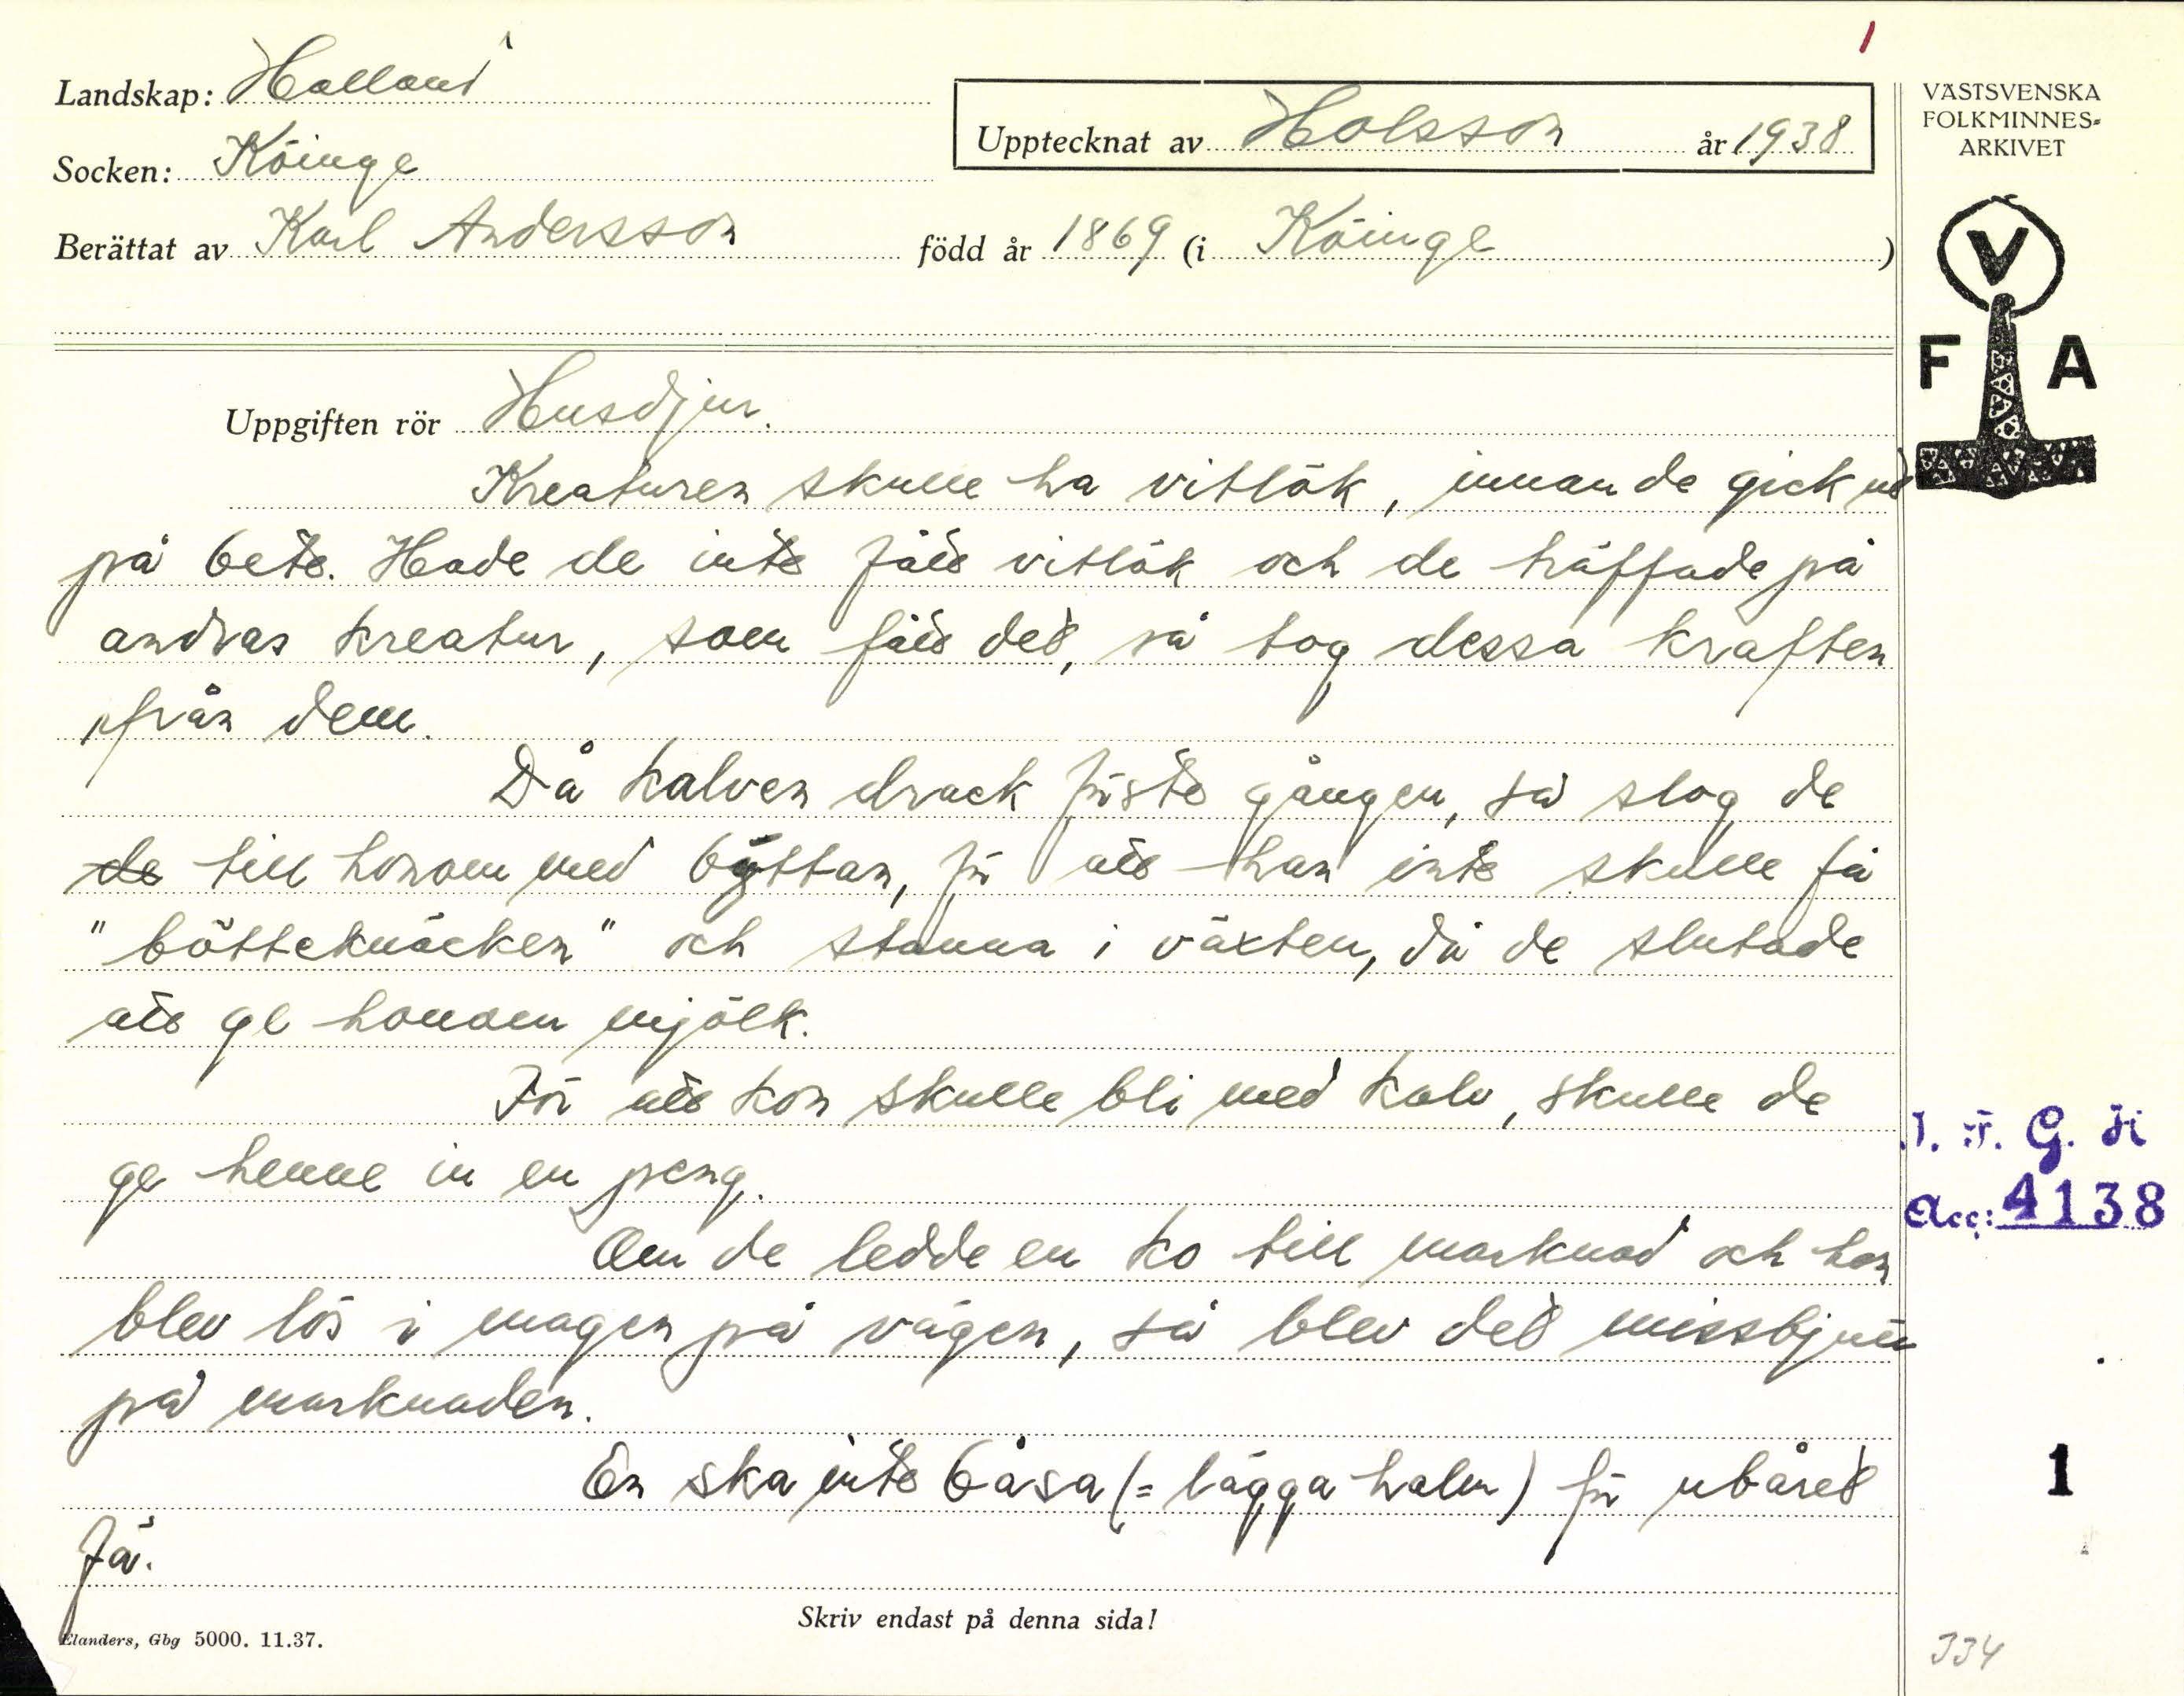 1
Landskap: Halland
Upptecknat av Holsson år 1938
VÄSTSVENSKA
FOLKMINNES-
ARKIVET
Socken: Köinge
Berättat av Karl Andersson född år 1869 (i Köinge)
V
F A
Uppgiften rör Husdjur.
Kreaturen skulle ha vitlök, innan de gick ut
på bete. Hade de inte fått vitlök och de träffade på
andras kreatur, som fått det, så tog dessa kraften
ifrån dem.
Då kalven drack första gången, så slog de
de till honom med byttan, för att han inte skulle få
"bötteknäcken" och stanna i växten, då de slutade
att ge honom mjölk.
För att kon skulle bli med kalv, skulle de
ge henne in en peng.
Om de ledde en ko till marknad och hon
blev lös i magen på vägen, så blev det missbjudet
på marknaden.
En ska inte båsa (= lägga halm) för ubåret
fä.
I. F. G. H
Acc: 4138
1
Skriv endast på denna sida!
Elanders, Gbg 5000. 11.37.
334